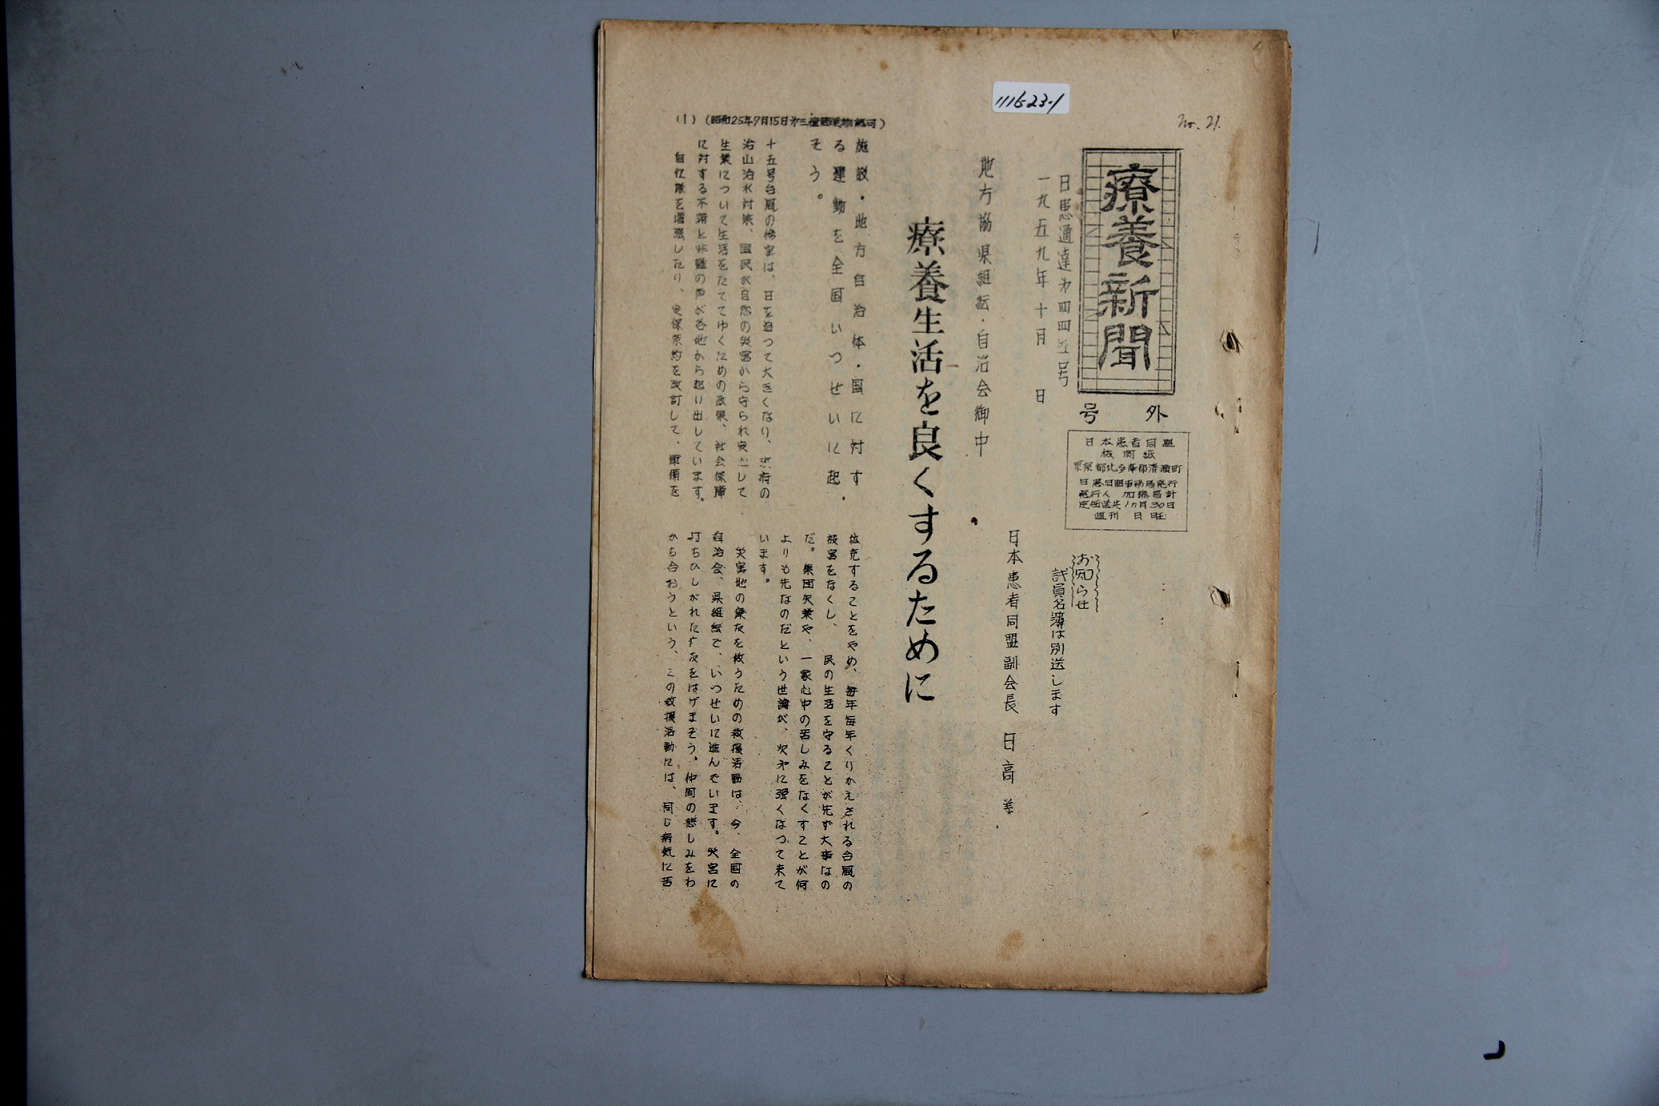 1116-23-1
No. 21.
(1) (昭和25年9月15日第三種郵便物認可)
療養新聞
号外
日本患者同盟
機関紙
東京都北多摩郡清瀬町
日患同盟事務局発行
発行人 加藤昌計
定価送共1ヵ月30円
週刊 日曜
お知らせ
評員名簿は別送します
日患通達第四四五号
一九五九年十月 日
地方協県組結・自治会御中
日本患者同盟副会長 日高
療養生活を良くするために
施設・地方自治体・国に対す
る運動を全国いつせいに起
そう。
十五号台風の惨害は、日を追つて大きくなり、政府の
治山治水対策、国民が自然の災害から守られ安心して
生業について生活をたててゆくための政策、社会保障
に対する不満と非難の声が各地から起り出しています。
自衛隊を増強したり、安保条約を改訂して、軍備を
拡充することをやめ、毎年毎年くりかえされる台風の
被害をなくし、 民の生活を守ることが先ず大事なの
だ。集団欠業や、一家心中の苦しみをなくすことが何
よりも先なのだという世論が、次第に強くなつて来て
います。
災害地の鎖たを救うための救援活動は、今、全国の
自治会、県組結で、いつせいに進んでいます。災害に
打ちひしがれた友をはげまそう。仲間の悲しみをわ
から合おうという、この救援活動には、同じ病気に苦